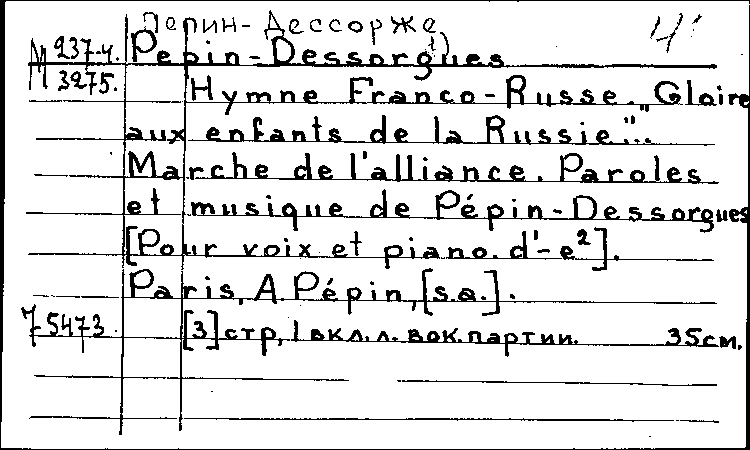 Пепин-Дессорже, 4'
М 237-4. Pepin-Dessorgues
3275. Hymne Franco-Russe. „Gloire
aux enfants de la Russie"...
Marche de l'alliance. Paroles
et musique de Pépin-Dessorgues
[Pour voix et piano. d'-e²].
Paris, A. Pépin, [s.a.].
5473. [3] стр, 1 вкл. л. вок. партии. 35 см.